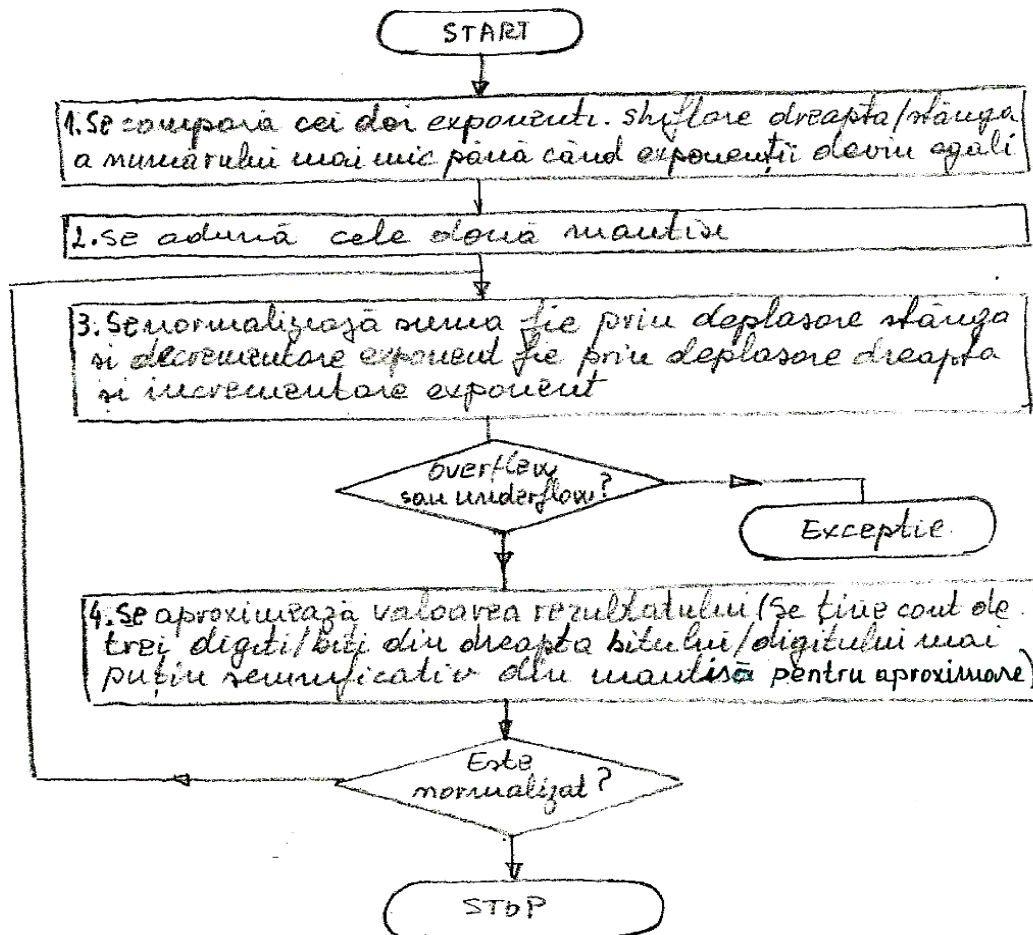 START
1. Se compară cei doi exponenti. shiftare dreapta/stânga
a numărului mai mic până când exponenții devin egali
2. Se adună cele două mantise
3. Se normalizează suma fie prin deplasare stânga
și decrementare exponent fie prin deplasare dreapta
și incrementare exponent
overflow
sau underflow?
Exceptie.
4. Se aproximează valoarea rezultatului (Se ține cont de
trei digiti/biti din dreapta bitului/digitului mai
puțin semnificativ din mantisă pentru aproximare)
Este
normalizat?
STOP